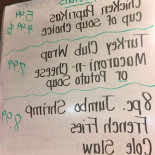 Chicken Paprikas
cup of soup choice
Turkey Club Wrap
Macaroni-n-Cheese 7.99
or Potato Soup
8pc. Jumbo Shrimp
French Fries
Cole Slaw